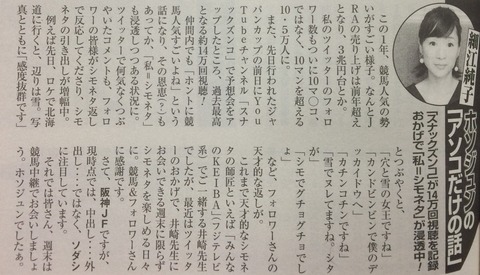 細江純子
ホソジュンの
「アソコだけの話」
「スナックスンコ」が14万回視聴を記録
おかげで「私=シモネタ」が浸透中!
この1年、競馬人気の勢
いがすごい様子。なんとJ
RAの売り上げは前年超え
となり、3兆円台とか。
私のツイッターのフォロ
ワー数もついに10マ〇コ、
ではなく、10マンを超えて
10・5万人に。
また、先日行われたジャ
パンカップの前日にYou
Tubeチャンネル「スナ
ックスンコ」で予想会をア
ップしたところ、過去最高
となる約14万回視聴!
仲間内でも「ホントに競
馬人気すごいよね」という
話になり、その恩恵(?)も
あってか、「私=シモネタ」
も浸透しつつある状況に。
ツイッターで何気なくつぶ
やいたコメントも、フォロ
ワーの皆様がシモネタ返し
で反応してくださり、シモ
ネタの引き出しが増幅中。
例えば先日、ロケで北海
道に行くと、辺りは雪。写
真とともに「感度抜群です」
とつぶやくと、
「穴と雪の女王ですね」
「カンドビンビン僕のデ
ッカイドウへ」
「カチンコチンですね」
「雪でヌレてますね。シタ
が」
「シモでグチョグチョでし
ょ」
など、フォロワーさんの
天才的な返しが。
これまで天才的なシモネタ
の師匠といえば「みんな
のKEIBA」(フジテレビ
系)でご一緒する井崎先生
でしたが、最近はツイッタ
ーのおかげで、井崎先生に
お会いできる週末に限らず
シモネタを楽しめる日々
に。競馬&フォロワーさん
に感謝です。
さて、阪神JFですが、
現時点では、中出し…外
出し…ではなく、ソダシ
に注目しています。
それでは皆さん、週末は
競馬中継でお会いしましょ
う。ホソジュンでしたぁ。